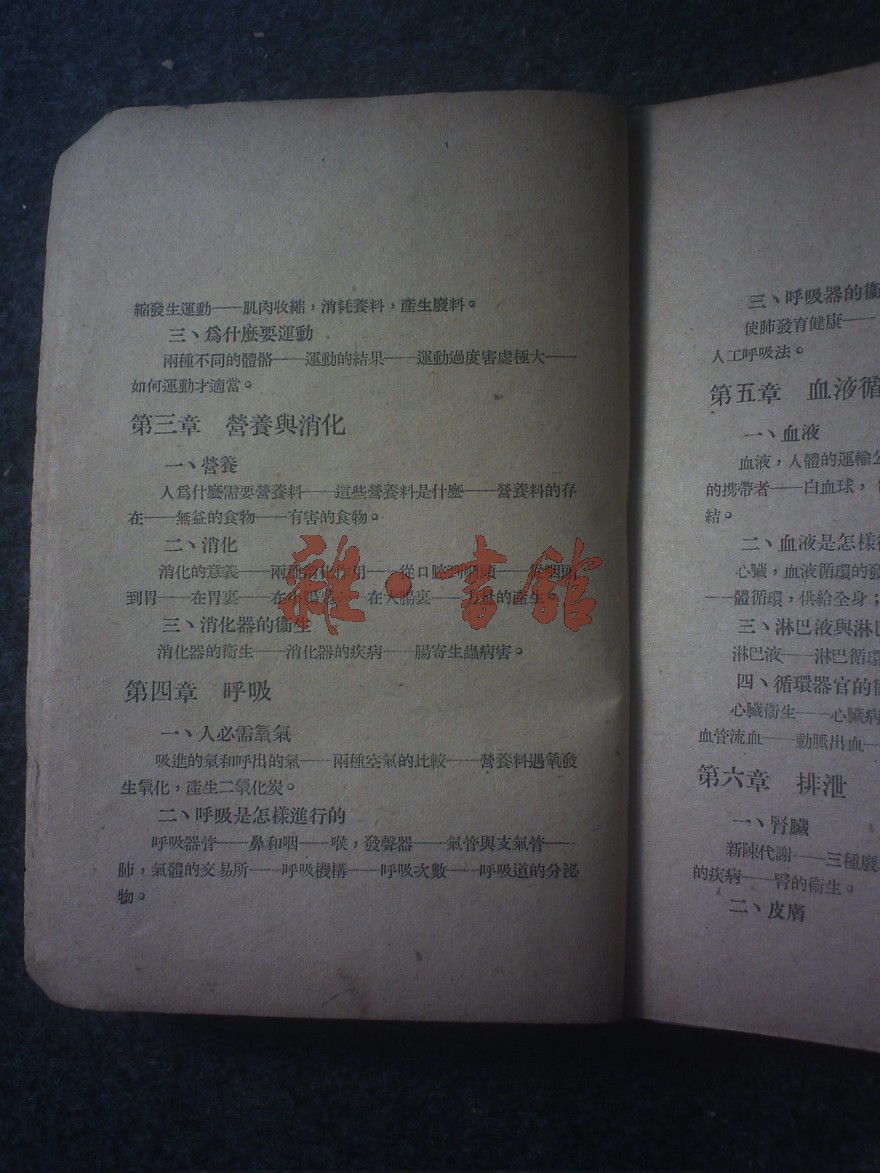 縮發生運動——肌肉收縮，消耗養料，產生廢料。
三、爲什麼要運動
兩種不同的體骼——運動的結果——運動過度害處極大——
如何運動才適當。
第三章 營養與消化
一、營養
人爲什麼需要營養料——這些營養料是什麼——營養料的存
在——無益的食物——有害的食物。
二、消化
消化的意義——兩種消化作用——從口腔到咽頭——從咽頭
到胃——在胃裏——在小腸裏——在大腸裏——的產生。
三、消化器的衞生
消化器的衞生——消化器的疾病——腸寄生蟲病害。
第四章 呼吸
一、人必需氧氣
吸進的氣和呼出的氣——兩種空氣的比較——營養料遇氧發
生氧化，產生二氧化炭。
二、呼吸是怎樣進行的
呼吸器管——鼻和咽——喉，發聲器——氣管與支氣管——
肺，氣體的交易所——呼吸機構——呼吸次數——呼吸道的分泌
物。
雜·書館
三、呼吸器的衞
使肺發育健康——
人工呼吸法。
第五章 血液循
一、血液
血液，人體的運輸公
的携帶者——白血球，
結。
二、血液是怎樣
心臟，血液循環的發
——體循環，供給全身；
三、淋巴液與淋巴
淋巴液——淋巴循環
四、循環器官的
心臟衞生——心臟病
血管流血——動脈出血—
第六章 排泄
一、腎臟
新陳代謝——三種廢
的疾病——腎的衞生。
二、皮膚